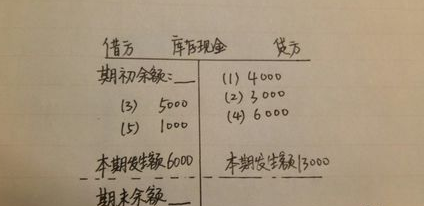 借方 库存现金 贷方
期初余额:__ (1) 4000
(3) 5000 (2) 3000
(5) 1000 (4) 6000
本期发生额6000 本期发生额13000
期末余额__